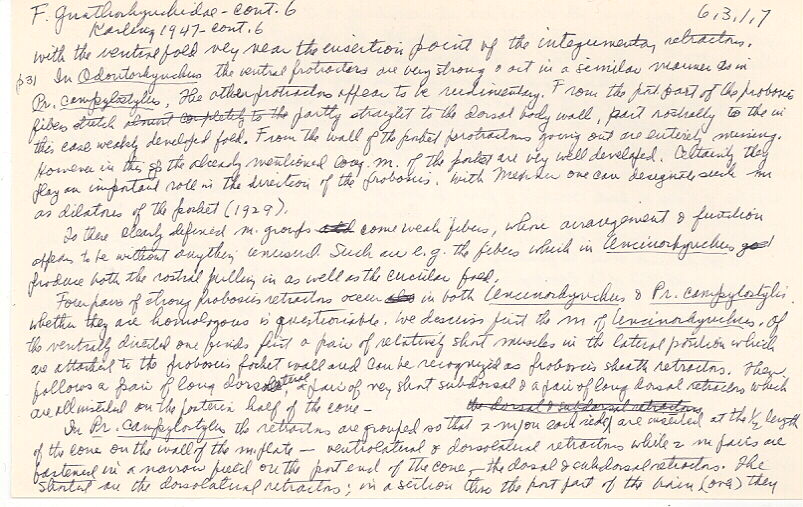 F. Gnathorhynchidae - cont. 6
6,3,1,7
Karling 1947 - cont. 6
with the ventral fold very near the insertion point of the integumentary retractors.
p31 In Odontorhynchus the ventral protractors are very strong & act in a similar manner as in
Pr. campylostylus. The other protractors appear to be rudimentary. From the post part of the proboscis
fibers stretch almost completely to the partly straight to the dorsal body wall, part rostrally to the in
this case weakly developed fold. From the wall of the pocket protractors going out are entirely missing.
However in this sp the already mentioned long. m. of the pocket are very well developed. Certainly they
play an important role in the direction of the proboscis. With Meixner one can designate such m
as dilators of the pocket (1929).
To these clearly defined m. groups come weak fibers, whose arrangement & function
appear to be without anything unusual. Such are e.g. the fibers which in Uncinorhynchus
produce both the rostral pulling in as well as the circular fold.
Four pairs of strong proboscis retractors occur in both Uncinorhynchus & Pr. campylostylus.
whether they are homologous is questionable. We discuss first the m of Uncinorhynchus. Of
the ventrally directed one finds first a pair of relatively short muscles in the lateral position which
are attached to the proboscis pocket wall and can be recognized as proboscis sheath retractors. Then
follows a pair of long dorsolateral, a pair of very short subdorsal & a pair of long dorsal retractors which
are all inserted on the posterior half of the cone -
the dorsal & subdorsal retractors
In Pr. campylostylus the retractors are grouped so that 2 m on each side are inserted at the ½ length
of the cone on the wall of the m. plate - ventrolateral & dorsolateral retractors while 2 m pairs are
fastened in a narrow field on the post end of the cone, - the dorsal & subdorsal retractors. The
shortest are the dorsolateral retractors; in a section thru the post part of the brain (over) they